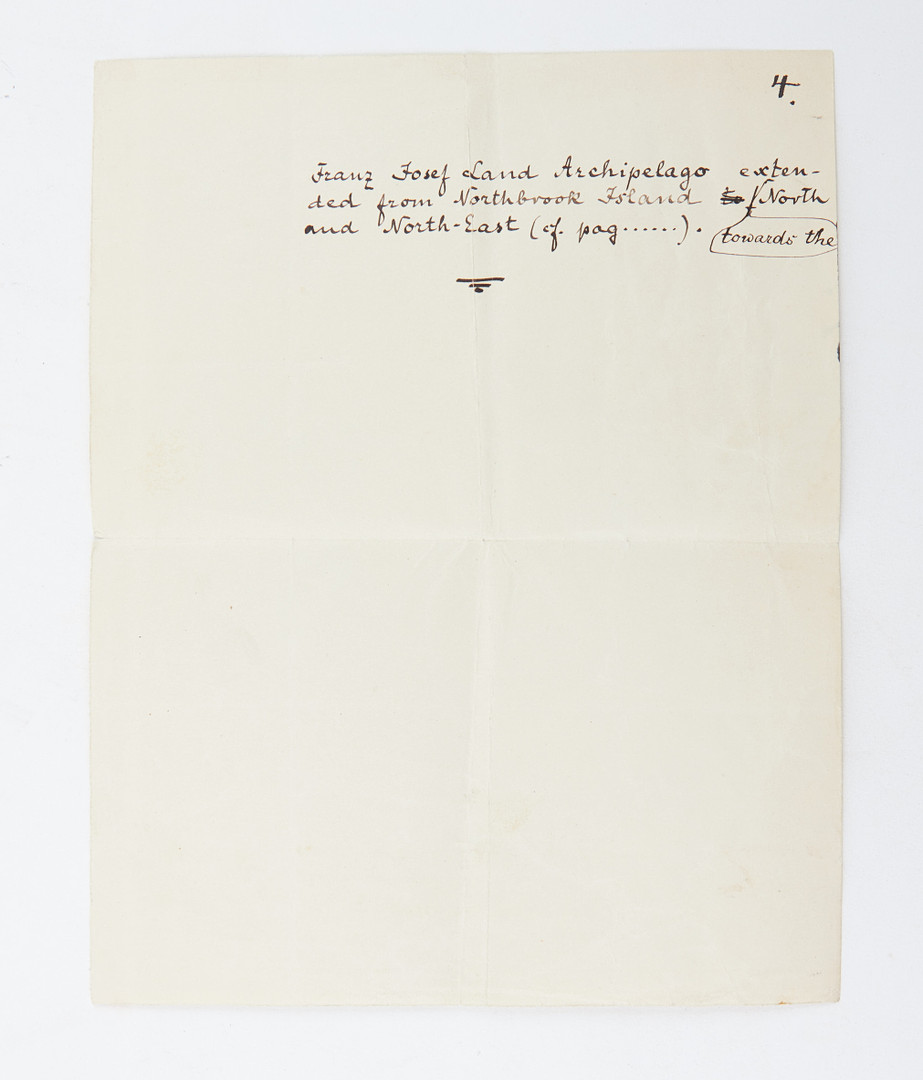 4.
Franz Josef Land Archipelago exten-
ded from Northbrook Island North
and North-East (cf. pag......).
towards the